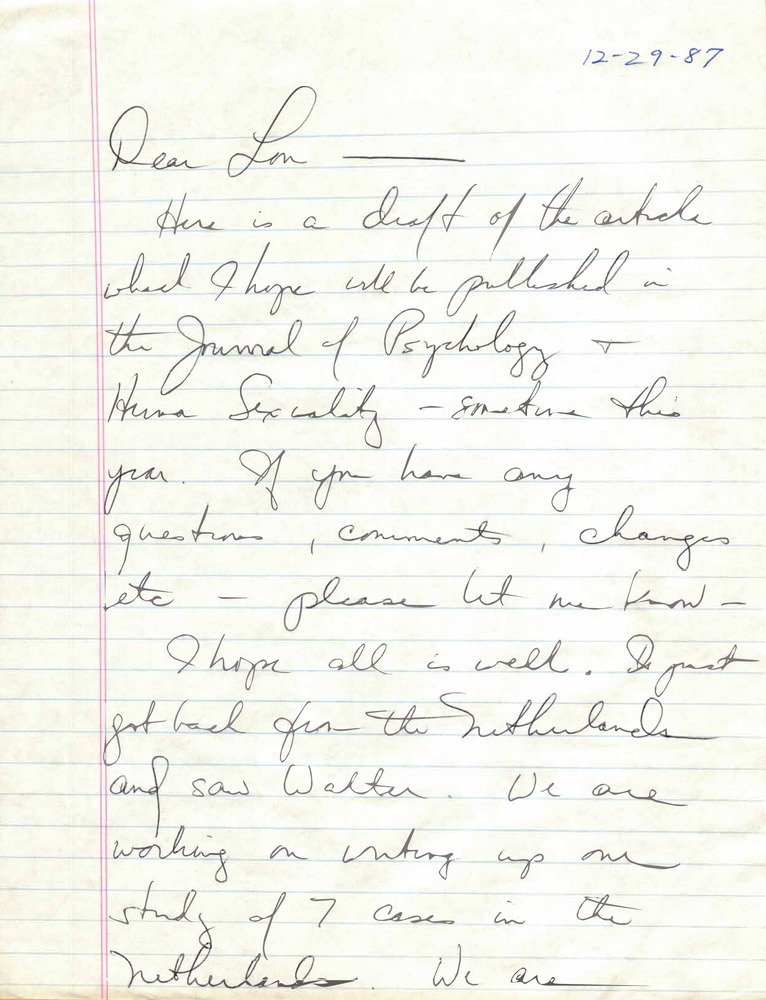 12-29-87
Dear Lou —
Here is a draft of the article
which I hope will be published in
the Journal of Psychology +
Human Sexuality - sometime this
year. If you have any
questions, comments, changes
etc - please let me know -
I hope all is well. I just
got back from the Netherlands
and saw Walter. We are
working on writing up our
study of 7 cases in the
Netherlands. We are